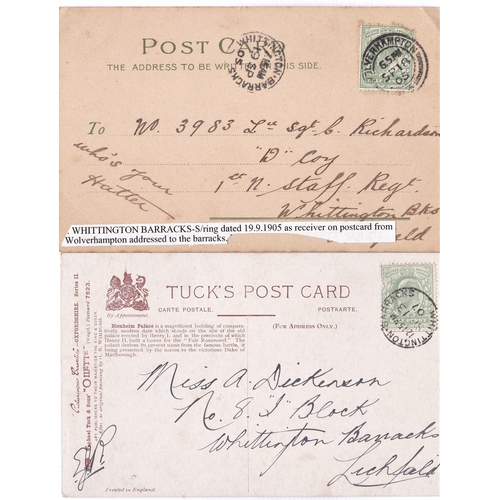 POST CARD
THE ADDRESS TO BE WRITTEN THIS SIDE.
WHITTINGTON BARRACKS
SP 19
05
WOLVERHAMPTON
SP 18
05
To No. 3983 Lce Sgt C. Richardson
"D" Coy
1st N. Staff Regt.
Whittington Bks
who's your
Hatter
WHITTINGTON BARRACKS-S/ring dated 19.9.1905 as receiver on postcard from
Wolverhampton addressed to the barracks.
TUCK'S POST CARD
CARTE POSTALE. POSTKARTE.
(FOR ADDRESS ONLY.)
By Appointment.
Blenheim Palace is a magnificent building of compara-
tively modern date which stands on the site of the old
palace erected by Henry I., and in the precincts of which
Henry II. built a bower for the "Fair Rosamond." The
palace derives its present name from the famous battle, it
being presented by the nation to the victorious Duke of
Marlborough.
WHITTINGTON BARRACKS
Miss A. Dickenson
No. 8. "I" Block
Whittington Barracks
Lichfield
Printed in England.
OXFORDSHIRE. Series II.
Raphael Tuck & Sons' "OILETTE" (Regd.) Postcard 7623.